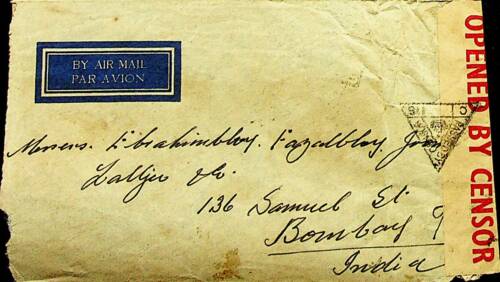 BY AIR MAIL
PAR AVION
OPENED BY CENSOR
Messrs. Ebrahimbhoy. Fazalbhoy
Lalljee & Co.
136 Samuel St.
Bombay 9
India